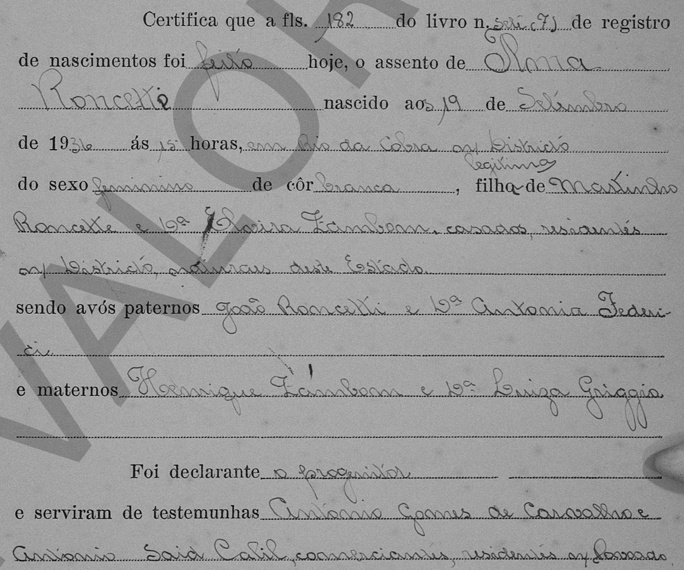 Certifica que a fls. 182 do livro n. seti (7) de registro
de nascimentos foi feito hoje, o assento de
Roncette nascido aos 19 de Setembro
de 1936 ás 15 horas, em Rio da Cobra n/ Districto
legitima
do sexo feminino de côr branca, filha de Martinho
Roncette e Dª Elvira Zambom, casados, residentes
n/ Districto, naturaes deste Estado.
sendo avós paternos João Roncetti e Dª Antonia Federi-
ci.
e maternos Henrique Zambom e Dª Luiza Griggio
Foi declarante o progenitor
e serviram de testemunhas Antonio Gomes de Carvalho e
Antonio Said Calil, comerciantes, residentes n/
VALOR